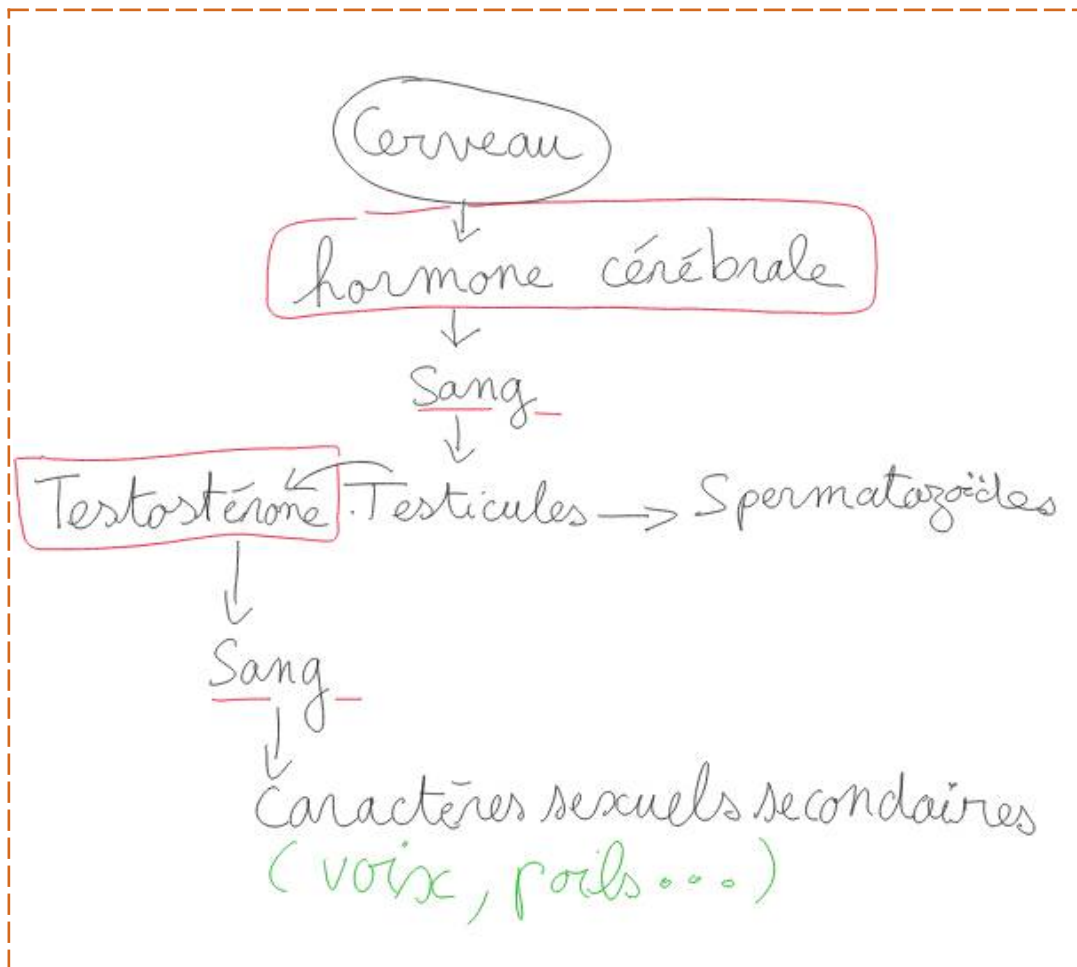 Cerveau
hormone cérébrale
Sang
Testostérone Testicules Spermatozoïdes
Sang
Caractères sexuels secondaires
(voix, poils...)